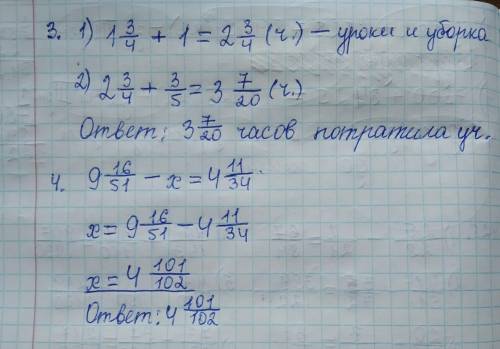 3. 1) 1 3/4 + 1 = 2 3/4 (ч.) – уроки и уборка
2) 2 3/4 + 3/5 = 3 7/20 (ч.)
Ответ: 3 7/20 часов потратила уч.
4. 9 16/51 – x = 4 11/34
x = 9 16/51 – 4 11/34
x = 4 101/102
Ответ: 4 101/102